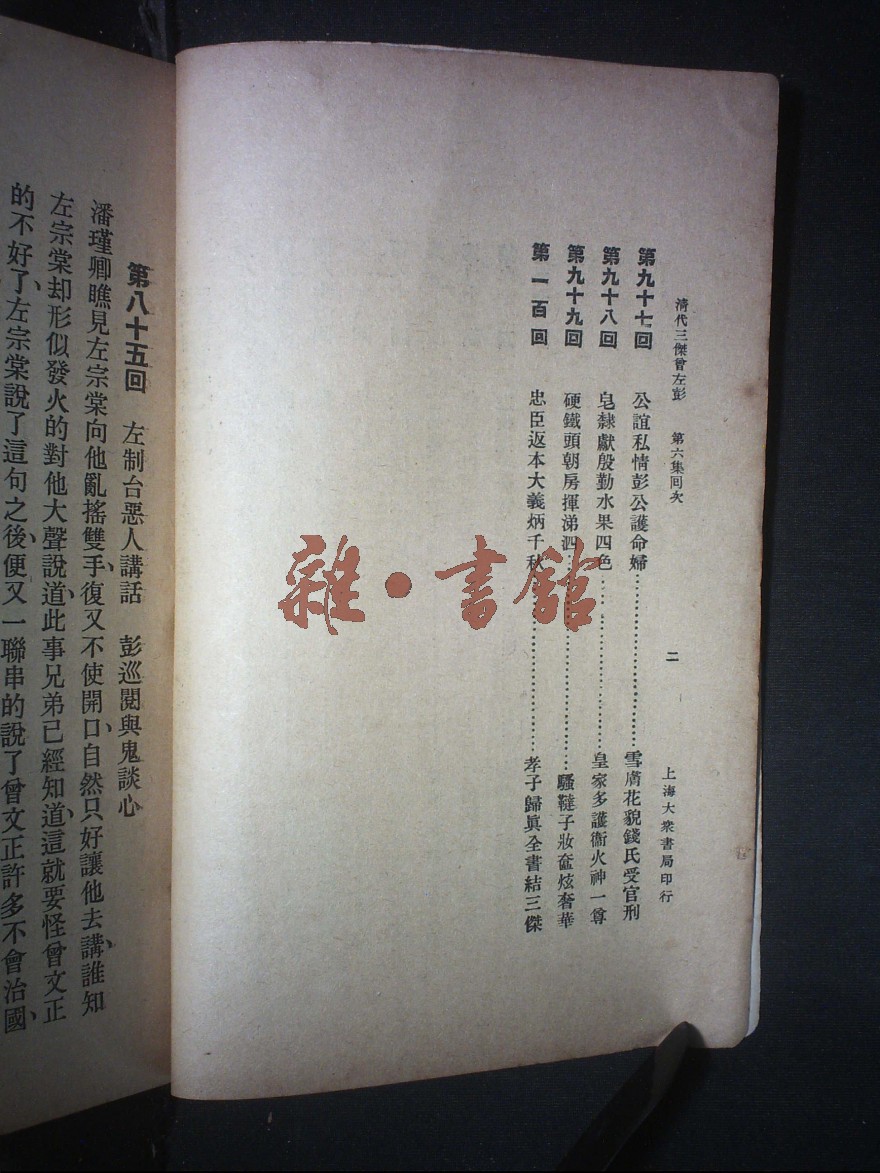 清代三傑曾左彭 第六集回次 二 上海大衆書局印行
第九十七回 公誼私情彭公護命婦……………………雪膚花貌錢氏受官刑
第九十八回 皂隸獻殷勤水果四色……………………皇家多護衞火神一尊
第九十九回 硬鐵頭朝房揮涕泗……………………騷韃子妝奩炫奢華
第一百回 忠臣返本大義炳千秋……………………孝子歸眞全書結三傑
雜·書館
第八十五回 左制台惡人講話 彭巡閱與鬼談心
潘瑾卿瞧見左宗棠向他亂搖雙手、復又不使開口、自然只好讓他去講、誰知
左宗棠却形似發火的對他大聲說道、此事兄弟已經知道、這就要怪曾文正
的不好了、左宗棠說了這句之後、便又一聯串的說了曾文正許多不會治國、